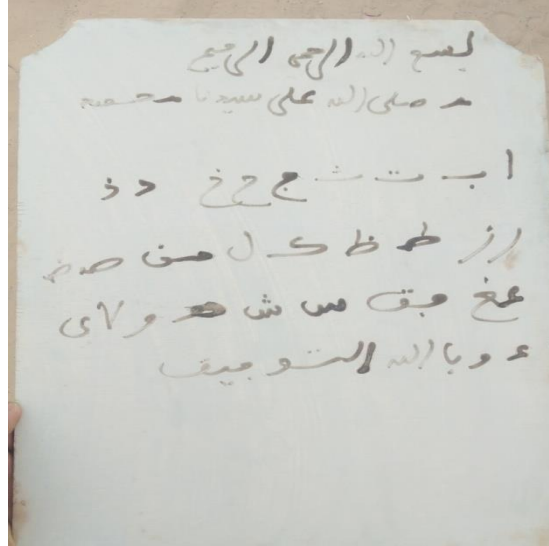 بسم الله الرحمن الرحيم
و صلى الله على سيدنا محمد
ا ب ت ث ج ح خ د ذ
ر ز ط ظ ك ل م ن ص ض
ع غ ف ق س ش ه و لا ي
ء و با الله التوفيق